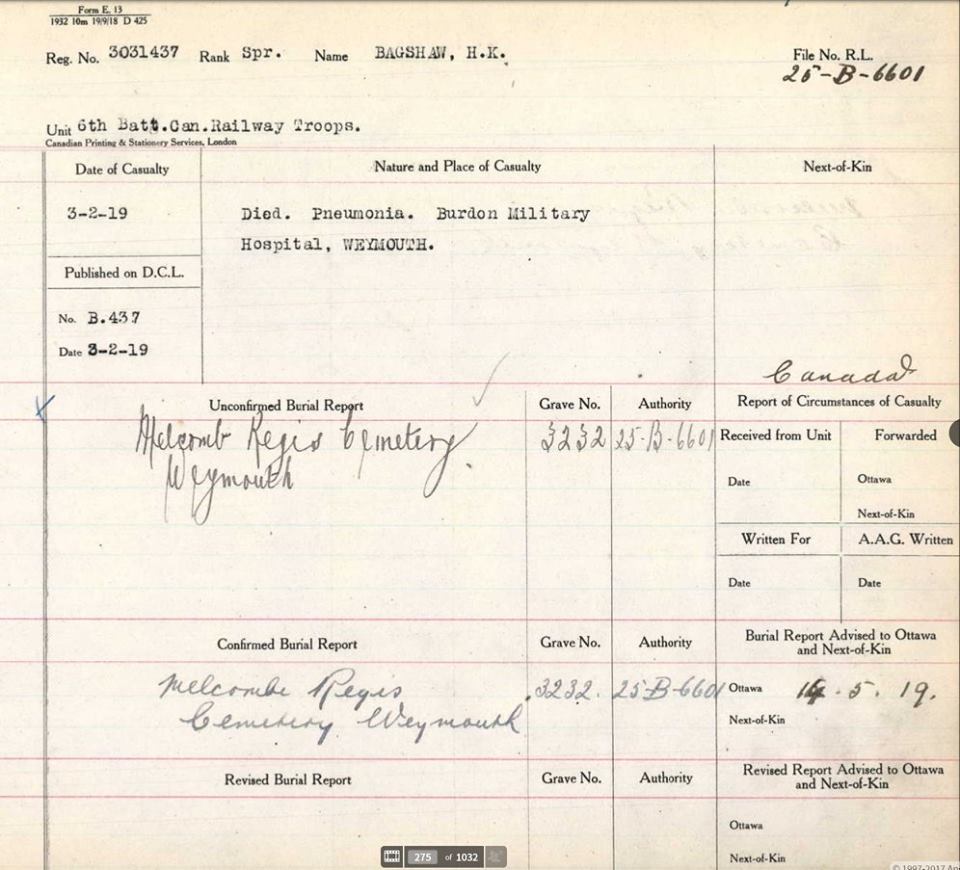 Form E. 13
1932 10m 19/9/18 D 425
Reg. No. 3031437 Rank Spr. Name BAGSHAW, H.K.
File No. R.L.
25-B-6601
Unit 6th Batt.Can.Railway Troops.
Canadian Printing & Stationery Services, London
Date of Casualty
Nature and Place of Casualty
Next-of-Kin
3-2-19
Died. Pneumonia. Burdon Military
Hospital, WEYMOUTH.
Published on D.C.L.
No. B.437
Date 3-2-19
Canada
Unconfirmed Burial Report
Grave No.
Authority
Report of Circumstances of Casualty
Melcomb Regis Cemetery
Weymouth
3232
25-B-6601
Received from Unit
Forwarded
Date
Ottawa
Next-of-Kin
Written For
A.A.G. Written
Date
Date
Confirmed Burial Report
Grave No.
Authority
Burial Report Advised to Ottawa
and Next-of-Kin
Melcombe Regis
Cemetery Weymouth
3232.
25-B-6601
Ottawa 14.5.19.
Next-of-Kin
Revised Burial Report
Grave No.
Authority
Revised Report Advised to Ottawa
and Next-of-Kin
Ottawa
Next-of-Kin
275 of 1032
© 1997-2017